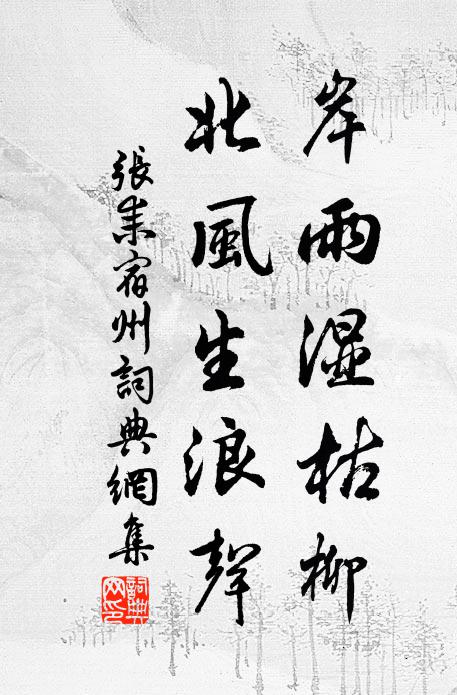 岸雨湿枯柳
北風生浪聲
張耒宿州詞典網集
詞典網印